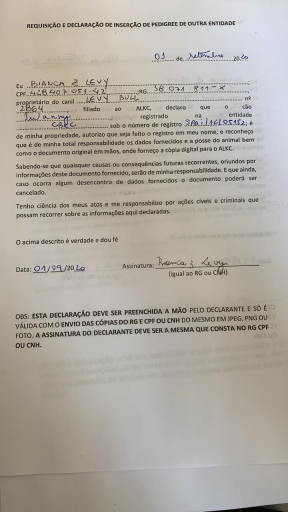 REQUISIÇÃO E DECLARAÇÃO DE INSERÇÃO DE PEDIGREE DE OUTRA ENTIDADE
01 de Setembro 2020
Eu BIANCA Z LEVY
CPF RG
proprietário do canil LEVY BULL nº
filiado ao ALKC, declaro que o cão
registrado na entidade
sob o número de registro e
de minha propriedade, autorizo que seja feito o registro em meu nome, e reconheço
que é de minha total responsabilidade os dados fornecidos e a posse do animal bem
como o documento original em mãos, onde forneço a cópia digital para o ALKC.
Sabendo-se que quaisquer causas ou consequências futuras recorrentes, oriundos por
informações deste documento fornecido, serão de minha responsabilidade. E que ainda,
caso ocorra algum desencontro de dados fornecidos o documento poderá ser
cancelado.
Tenho ciência dos meus atos e me responsabilizo por ações cíveis e criminais que
possam recorrer sobre as informações aqui declaradas.
O acima descrito é verdade e dou fé
Data: 01/09/2020 Assinatura: Bianca Z Levy
(igual ao RG ou CNH)
OBS: ESTA DECLARAÇÃO DEVE SER PREENCHIDA A MÃO PELO DECLARANTE E SÓ É
VÁLIDA COM O ENVIO DAS CÓPIAS DO RG E CPF OU CNH DO MESMO EM JPEG, PNG OU
FOTO. A ASSINATURA DO DECLARANTE DEVE SER A MESMA QUE CONSTA NO RG CPF
OU CNH.